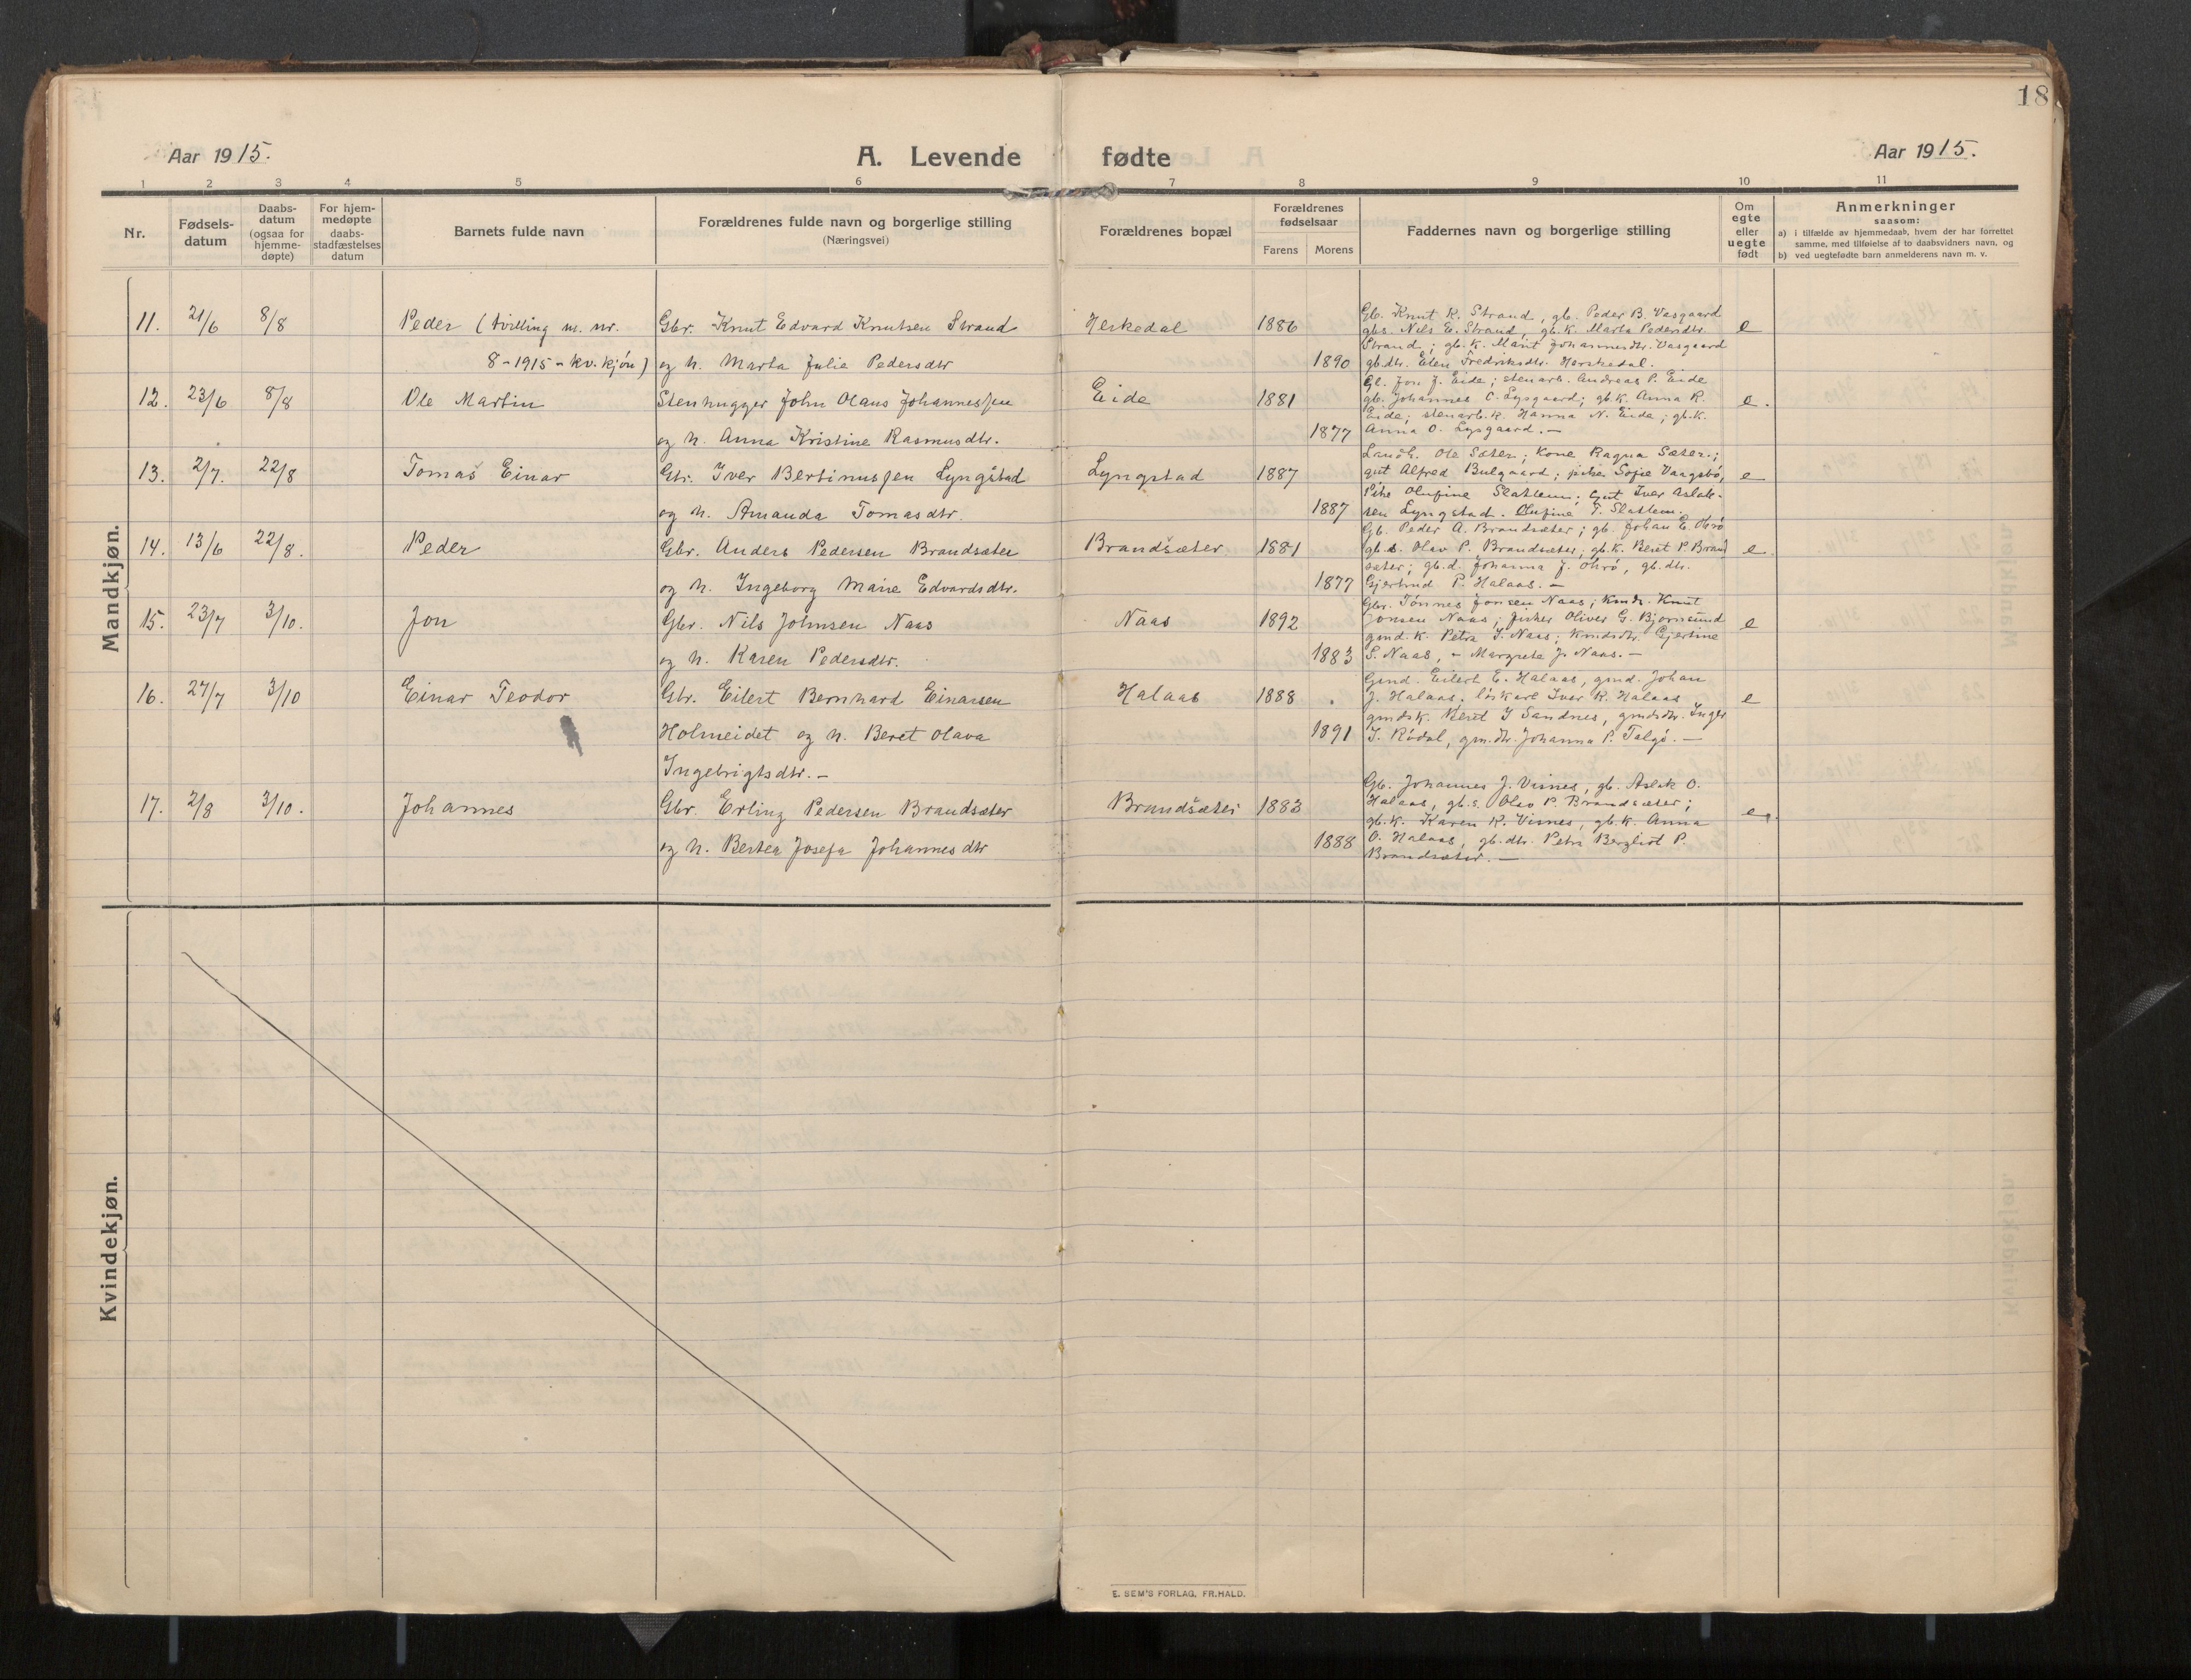 18
Aar 1915.
A. Levende fødte
Aar 1915.
1 2 3 4 5 6 7 8 9 10 11
Nr.
Fødsels-
datum
Daabs-
datum
(ogsaa for
hjemme-
døpte)
For hjem-
medøpte
daabs-
stadfæstelses
datum
Barnets fulde navn
Forældrenes fulde navn og borgerlige stilling
(Næringsvei)
Forældrenes bopæl
Forældrenes
fødselsaar
Farens Morens
Faddernes navn og borgerlige stilling
Om
egte
eller
uegte
født
Anmerkninger
saasom:
a) i tilfælde av hjemmedaab, hvem der har forrettet
samme, med tilføielse af to daabsvidners navn, og
b) ved uegtefødte barn anmelderens navn m. v.
Mandkjøn.
11. 21/6 8/8 Peder (tvilling m. nr.
8-1915- kv. kjøn)
Gbr. Knut Edvard Knutsen Strand
og h. Marta Julie Pedersdtr
Herskedal 1886
1890
Gb. Knut K. Strand, gb. Peder B. Vasgaard
gbs. Nils E. Strand, gb.k. Marta Pedersdtr.
Strand; gb.k. Marit Johannesdtr. Vasgaard
gb.dtr. Elen Fredriksdtr. Herskedal.
e
12. 23/6 8/8 Ole Martin
Stenhugger John Olaus Johannessen
og h. Anna Kristine Rasmusdtr.
Eide 1881
1877
Gb. Jon J. Eide; stenarb. Andreas P. Eide
gb. Johannes O. Lysgaard; gb.k. Anna R.
Eide; stenarb.k. Hanna N. Eide; gb.k.
Anna O. Lysgaard. -
e.
13. 2/7. 22/8 Tomas Einar
Gbr. Iver Bertinussen Lyngstad
og h. Amanda Tomasdtr.
Lyngstad 1887
1887
Landh. Ole Sæter; Kone Ragna Sæter;
gut Alfred Bulgaard; pike Sofie Vaagsbø,
Pike Olufine Slatlem; Gut Iver Aslak-
sen Lyngstad. Olufine T. Slatlem.
e
14. 13/6 22/8. Peder
Gbr. Anders Pedersen Brandsæter
og h. Ingeborg Marie Edvardsdtr.
Brandsæter 1881
1877
Gb. Peder A. Brandsæter; gb. Johan E. Ohrø
gb.s. Olav P. Brandsæter; gb.k. Beret P. Brand
sæter; gb.d. Johanna J. Ohrø, gb.dtr.
Gjertrud P. Halaas. -
e.
15. 23/7 3/10. Jon
Gbr. Nils Johnsen Naas
og h. Karen Pedersdtr.
Naas 1892
1883
Gbr. Tønnes Jonsen Naas; Kmds. Knut
Jonsen Naas; fisker Oliver G. Bjørnsund
gmd.k. Petra I. Naas; kmdsdtr. Gjertine
S. Naas, - Margrete J. Naas. -
e
16. 27/7 3/10 Einar Teodor
Gbr. Eilert Bernhard Einarsen
Holmeidet og h. Beret Olava
Ingebrigtsdtr. -
Halaas 1888
1891
Gmd. Eilert E. Halaas, gmd. Johan
J. Halaas, løskarl Iver K. Halaas
gmdsk. Beret I Sandnes, gmdsdtr. Inger
I. Rødal, gm.dtr. Johanna P. Talgø. -
e
17. 2/8 3/10. Johannes
Gbr. Erling Pedersen Brandsæter
og h. Bertea Josefa Johannesdtr
Brandsæter 1883
1888
Gb. Johannes J. Visnes, gb. Aslak O.
Halaas, gb.s. Olav P. Brandsæter;
gb.k. Karen K. Visnes, gb.k. Anna
O. Halaas, gb.dtr. Petra Bergliot P.
Brandsæter. -
e
Kvindekjøn.
E. SEM'S FORLAG, FR.HALD.